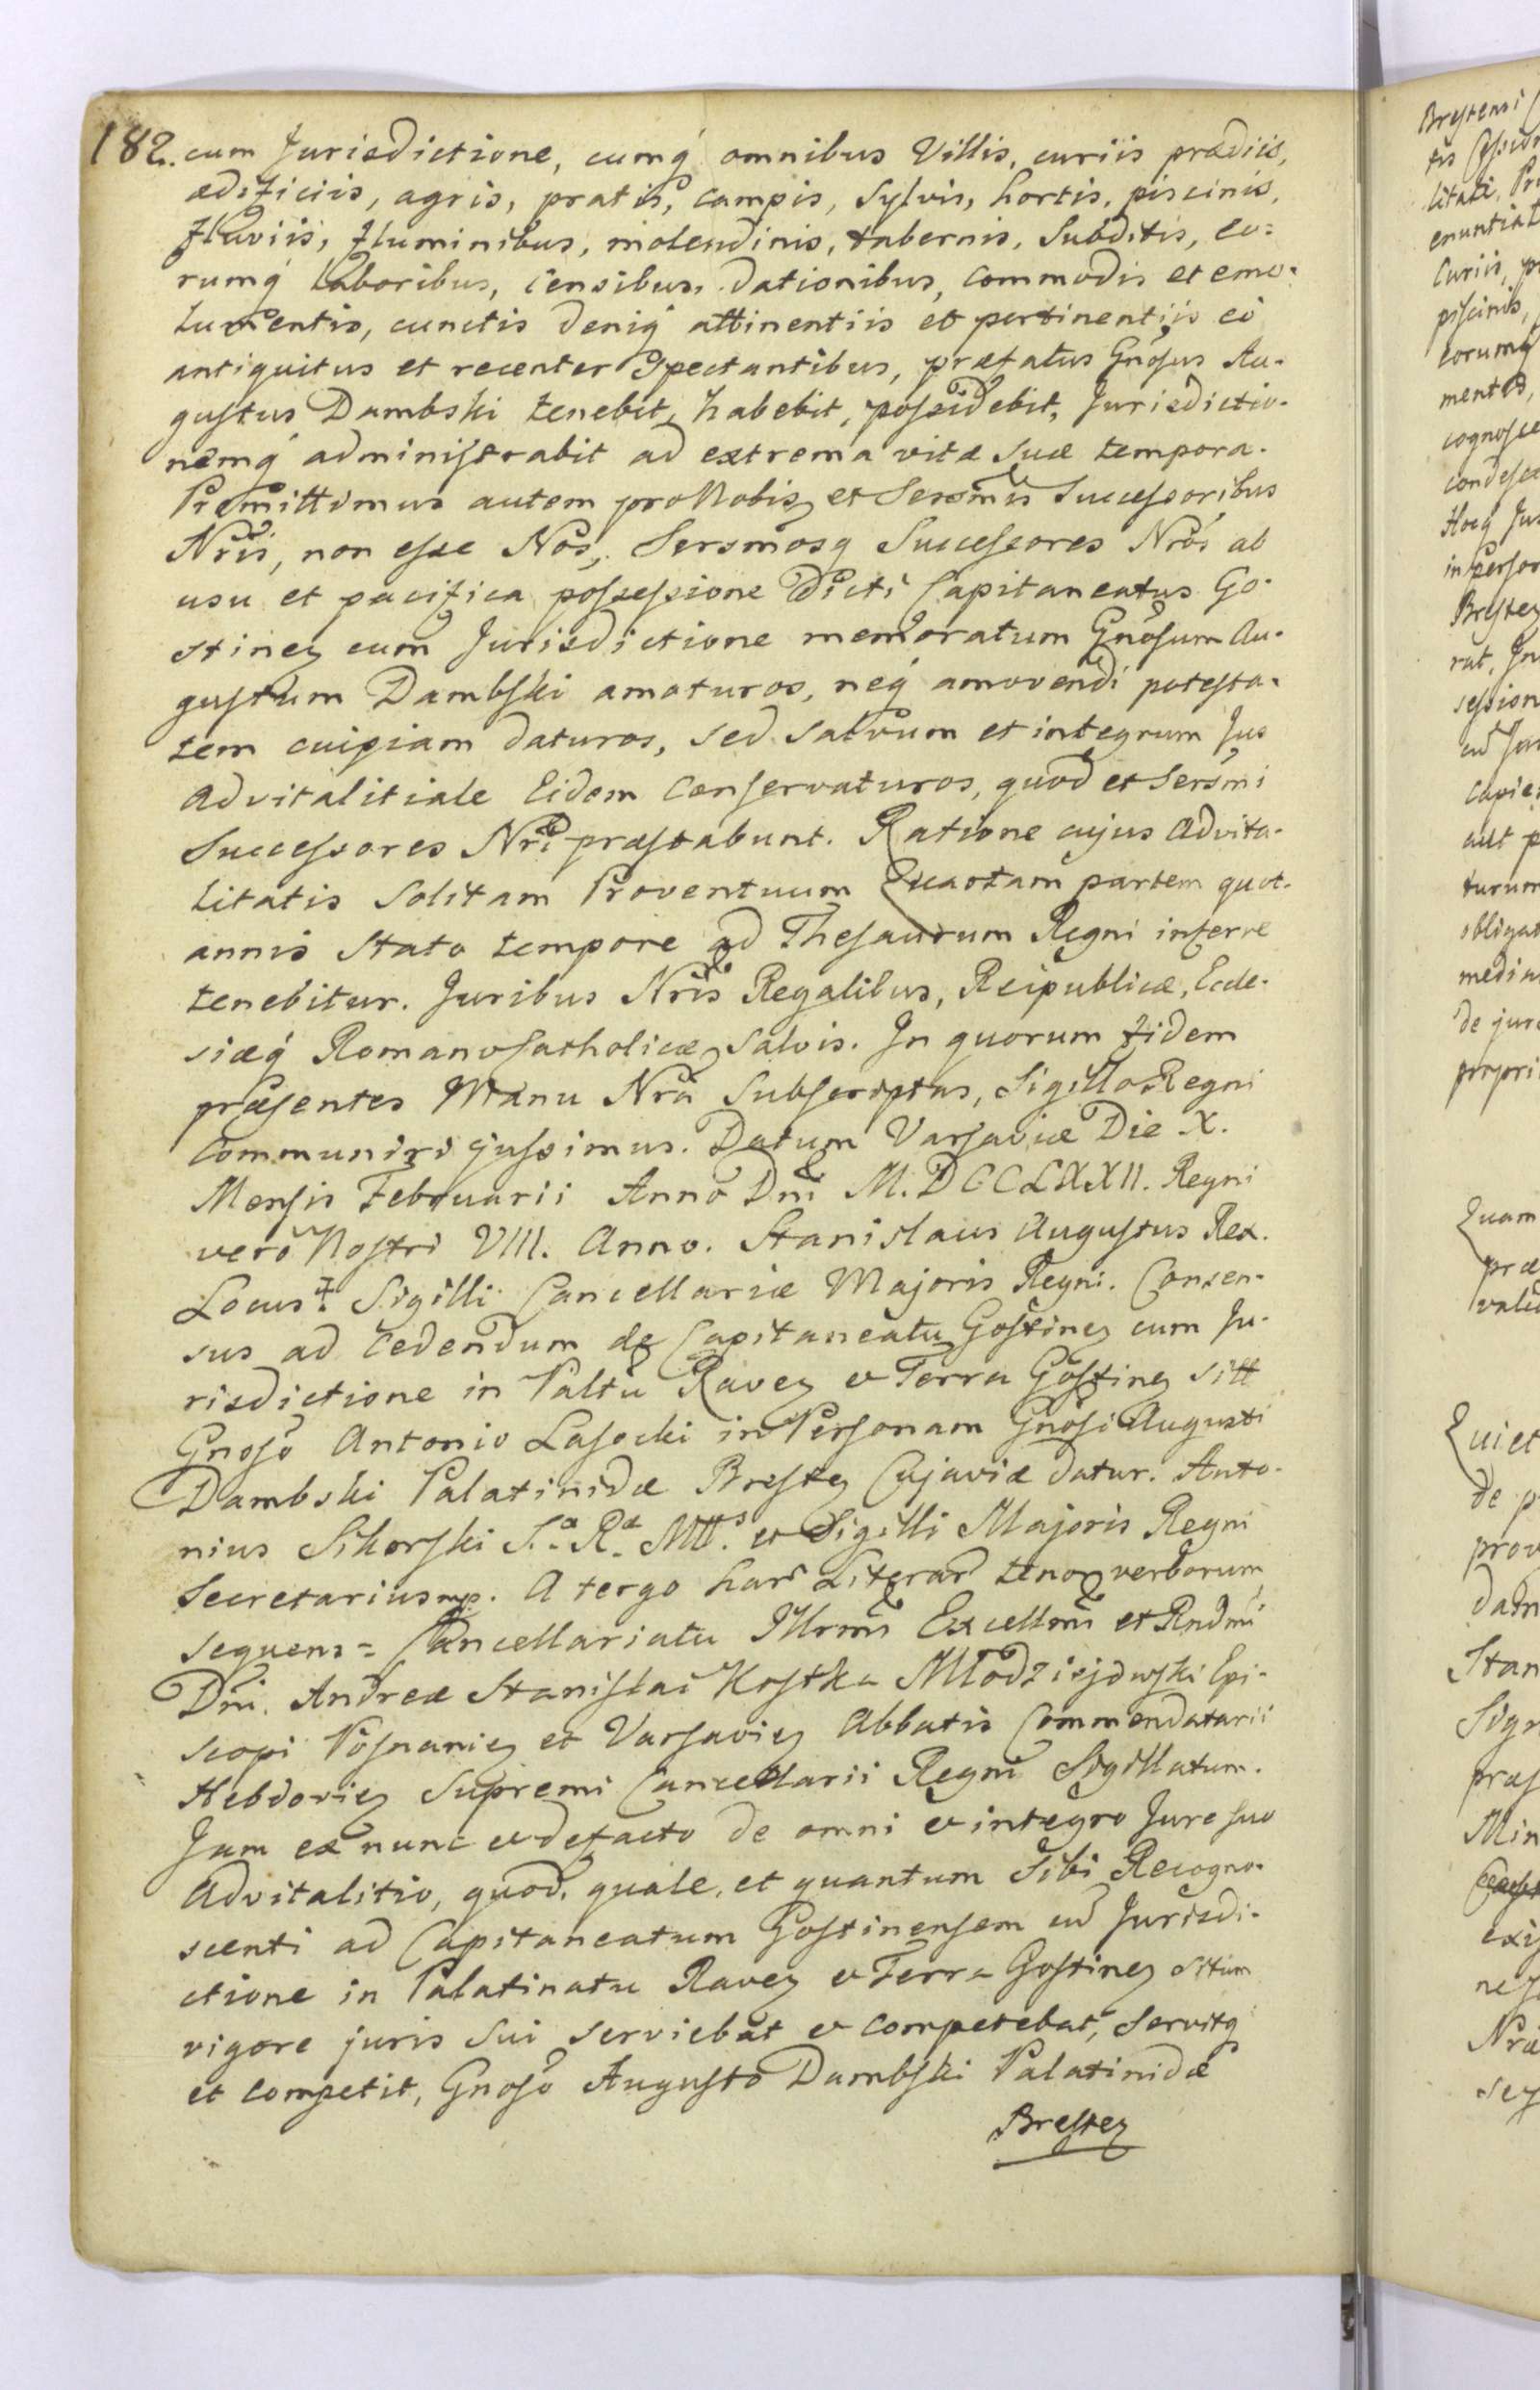 182. cum Jurisdictione, cumq́ omnibus Villis, curiis prædiis,
ædificiis, agris, pratis, campis, Sylvis, hortis, piscinis,
fluviis, fluminibus, molendinis, tabernis, Subditis, eo=
rumq́ Laboribus, censibus, dationibus, commodis et emo-
lumentis, cunctis deniq́ attinentiis et pertinentiis ei
antiquitus et recenter Spectantibus, præfatus Gnõsus Au-
gustus Dambski tenebit, habebit, possidebit, Jurisdictio-
nemq́ administrabit ad extrema vitæ Suæ tempora.
Promittimus autem pro Nobis, et Sersmis Successoribus
Nris, non esse Nos, Sersmosq Successores Nros ab
usu et pacifica possessione Dicti Capitaneatus Go-
stinen cum Jurisdictione memoratum Gnõsum Au-
gustum Dambski amoturos, neq́ amovendi potesta-
tem cuipiam daturos, sed salvum et integrum Jus
advitalitiale Eidem conservaturos, quod et Sersmi
Successores Nri præstabunt. Ratione cujus Advita-
litatis Solitam Proventuum Quartam partem quot-
annis Stato tempore ad Thesaurum Regni inferre
tenebitur. Juribus Nris Regalibus, Reipublicæ, Eccle-
siæq́ Romano Catholicæ, Salvis. In quorum fidem
præsentes Manu Nra Subscriptas, Sigillo Regni
Communiri jussimus. Datum Varsaviæ Die X.
Mensis Februarii Anno Dni M.DCCLXXII. Regni
vero Nostri VIII. Anno. Stanislaus Augustus Rex.
Locus ‡ Sigilli Cancellariæ Majoris Regni. Consen-
sus ad cedendum de Capitaneatu Gostinen cum Ju-
risdictione in Paltu Raven et Terra Gostinen sitt
Gnoso Antonio Lasocki in Personam Gnõsi Augusti
Dambski Palatinidæ Bresten Cujaviæ datur. Anto-
nius Sikorski S.æ R.æ Mtt.s et Sigilli Majoris Regni
Secretarius mp. A tergo har Literar tenor verborum
sequens = Cancellariatu Illrmi Excellmi et Rndmi
Dni. Andreæ Stanislai Kostka Młodziejowski Epi-
scopi Posnanien et Varsavien Abbatis Commendatarii
Hebdovien Supremi Cancellarii Regni Sigillatum.
Jam ex nunc et defacto de omni et integro Jure suo
Advitalitio, quod, quale, et quantum Sibi Recogno-
scenti ad Capitaneatum Gostinensem cū Jurisdi-
ctione in Palatinatu Raven et Terra Gostinen situm
vigore juris Sui serviebat et competebat, Servitq
et competit, Gnoso Augusto Dambski Palatinidæ
Bresten
Brestensi
litati,
enuntiat
Curiis,
piscinis,
eorumq́
cognosce
Hocq́ Jus
Bresten
rat,
session
capie
aut p
turum
obligat
media
de jure
Quam
præ
Quiet
de p
prov
Dam
Stan
Sig
præs
Min
exis
Nræ
seq